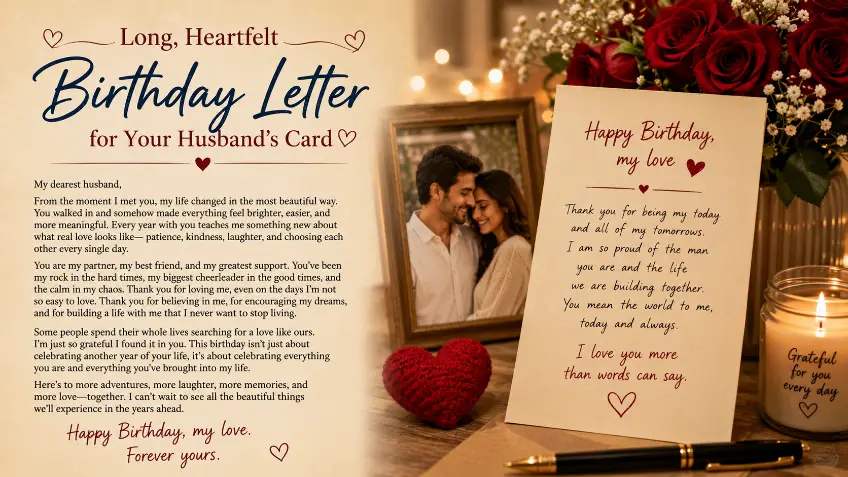 Long, Heartfelt
Birthday Letter
for Your Husband's Card
My dearest husband,
From the moment I met you, my life changed in the most beautiful way.
You walked in and somehow made everything feel brighter, easier, and
more meaningful. Every year with you teaches me something new about
what real love looks like— patience, kindness, laughter, and choosing each
other every single day.
You are my partner, my best friend, and my greatest support. You've been
my rock in the hard times, my biggest cheerleader in the good times, and
the calm in my chaos. Thank you for loving me, even on the days I'm not
so easy to love. Thank you for believing in me, for encouraging my dreams,
and for building a life with me that I never want to stop living.
Some people spend their whole lives searching for a love like ours.
I'm just so grateful I found it in you. This birthday isn't just about
celebrating another year of your life, it's about celebrating everything
you are and everything you've brought into my life.
Here's to more adventures, more laughter, more memories, and
more love—together. I can't wait to see all the beautiful things
we'll experience in the years ahead.
Happy Birthday, my love.
Forever yours.
Happy Birthday,
my love
Thank you for being my today
and all of my tomorrows.
I am so proud of the man
you are and the life
we are building together.
You mean the world to me,
today and always.
I love you more
than words can say.
Grateful
for you
every day